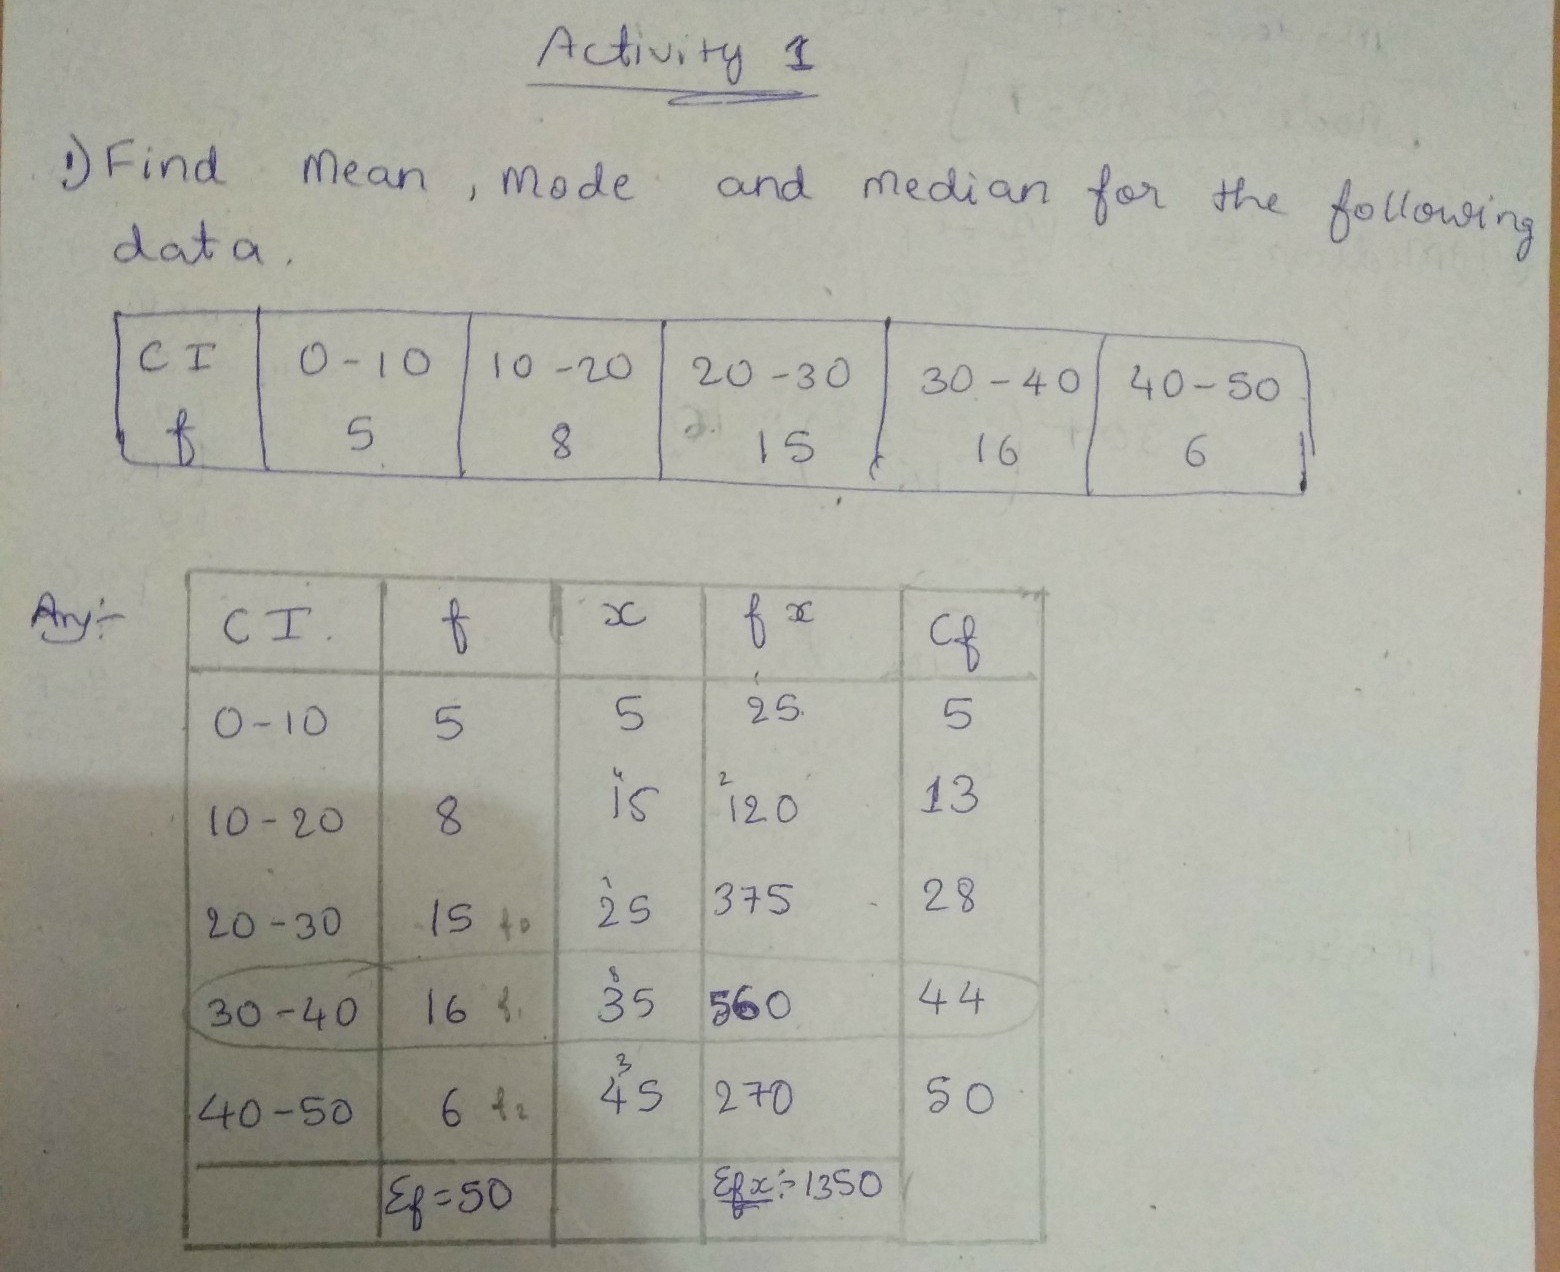 Activity 1
1) Find Mean, Mode and median for the following
data.
CI 0-10 10-20 20-30 30-40 40-50
f 5 8 15 16 6
Ans:-
CI. f x fx Cf
0-10 5 5 25 5
10-20 8 15 120 13
20-30 15 f0 25 375 28
30-40 16 f1 35 560 44
40-50 6 f2 45 270 50
Σf=50 Σfx:-1350